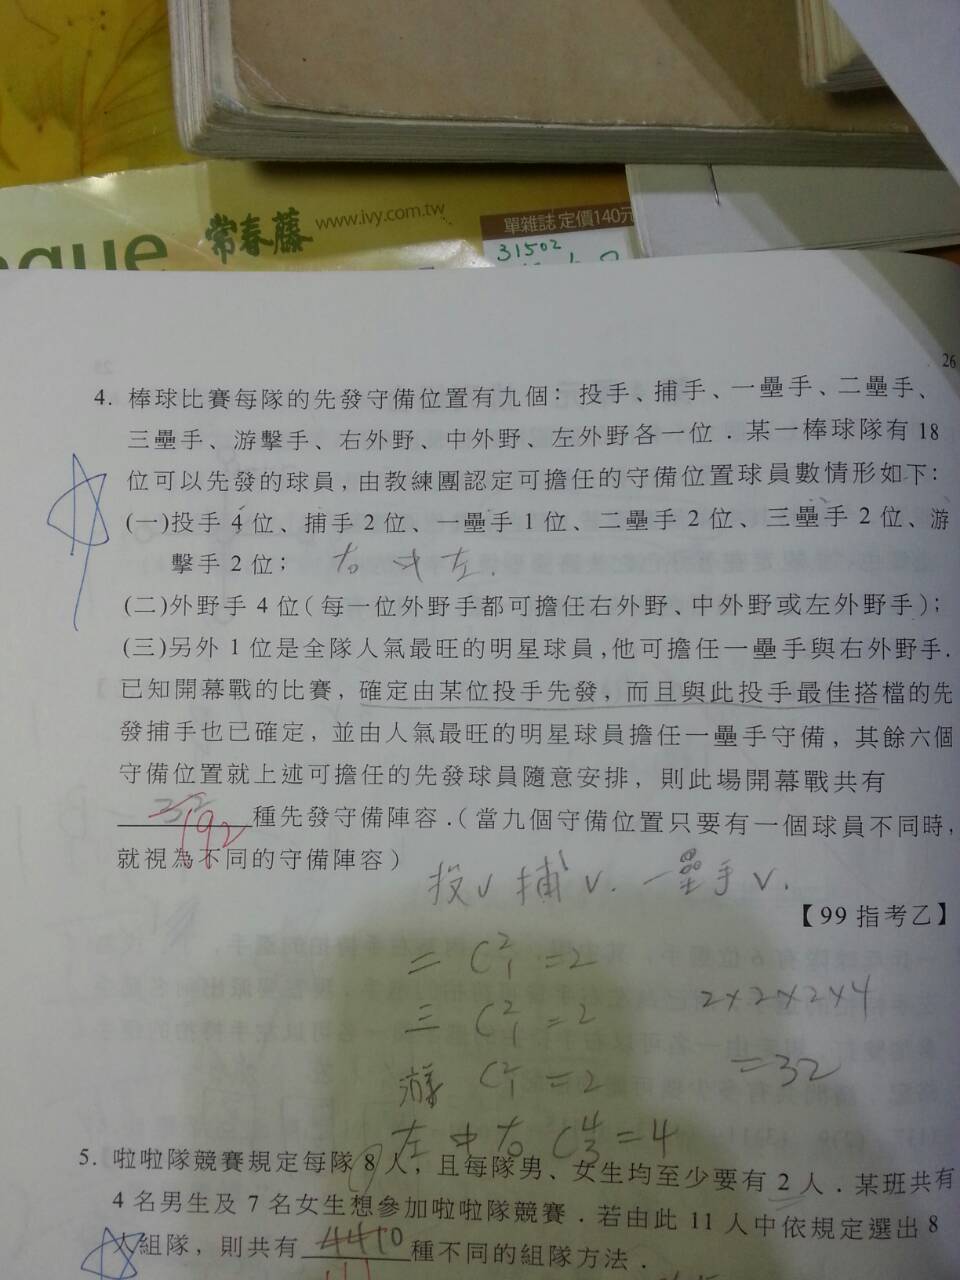 常春藤
www.ivy.com.tw
單雜誌 定價140元
31502
26
4. 棒球比賽每隊的先發守備位置有九個：投手、捕手、一壘手、二壘手、
三壘手、游擊手、右外野、中外野、左外野各一位．某一棒球隊有 18
位可以先發的球員，由教練團認定可擔任的守備位置球員數情形如下：
(一)投手 4 位、捕手 2 位、一壘手 1 位、二壘手 2 位、三壘手 2 位、游
擊手 2 位；
右 中 左.
(二)外野手 4 位（每一位外野手都可擔任右外野、中外野或左外野手）；
(三)另外 1 位是全隊人氣最旺的明星球員，他可擔任一壘手與右外野手．
已知開幕戰的比賽，確定由某位投手先發，而且與此投手最佳搭檔的先
發捕手也已確定，並由人氣最旺的明星球員擔任一壘手守備，其餘六個
守備位置就上述可擔任的先發球員隨意安排，則此場開幕戰共有
32 192 種先發守備陣容．（當九個守備位置只要有一個球員不同時，
就視為不同的守備陣容）
投∨ 捕∨. 一壘手∨.
【99 指考乙】
二 C²₁ = 2
三 C²₁ = 2
2×2×2×4
游 C²₁ = 2
=32
左中右 C⁴₃ = 4
5. 啦啦隊競賽規定每隊 8 人，且每隊男、女生均至少要有 2 人．某班共有
4 名男生及 7 名女生想參加啦啦隊競賽．若由此 11 人中依規定選出 8
人組隊，則共有 4410 種不同的組隊方法．